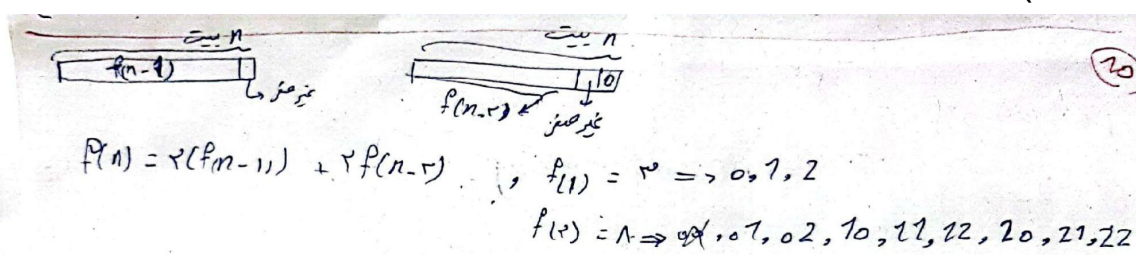 n بیت
f(n-1)
غیر صفر
n بیت
0
f(n-۲)
غیر صفر
20
f(n) = ۲(f(n-1)) + ۲f(n-۲) , f(1) = ۳ => 0,1,2
f(۲) = ۸ => 00, 01, 02, 10, 11, 12, 20, 21, 22